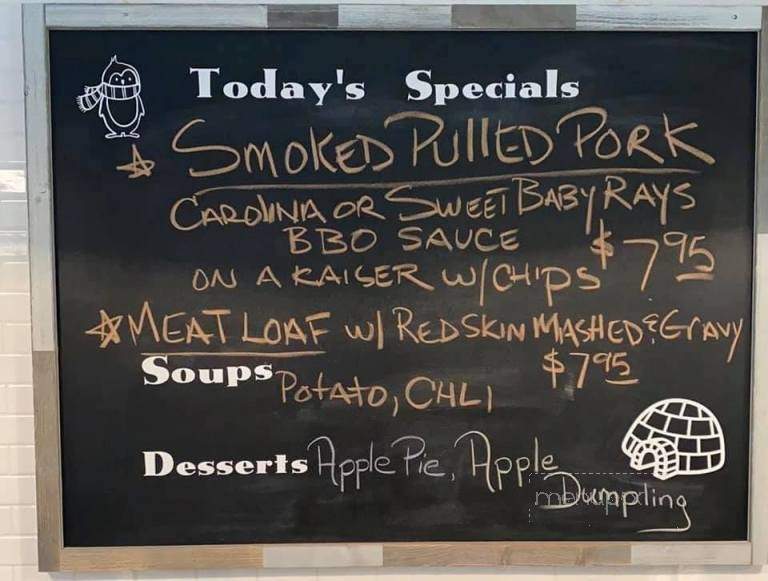 Today's Specials
SMOKED PULLED PORK
CAROLINA OR SWEET BABY RAYS
BBQ SAUCE $7.95
ON A KAISER W/CHIPS
MEATLOAF W/ REDSKIN MASHED & GRAVY
$7.95
Soups POTATO, CHLI
Desserts Apple Pie, Apple
Dumpling